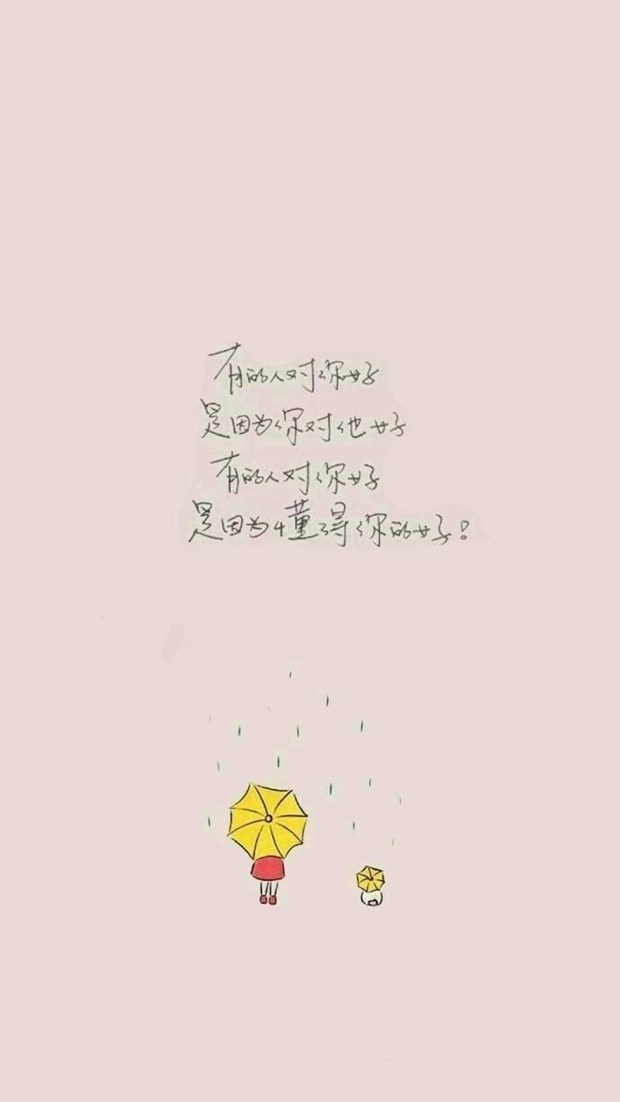 有的人对你好
是因为你对他好
有的人对你好
是因为懂得你的好!